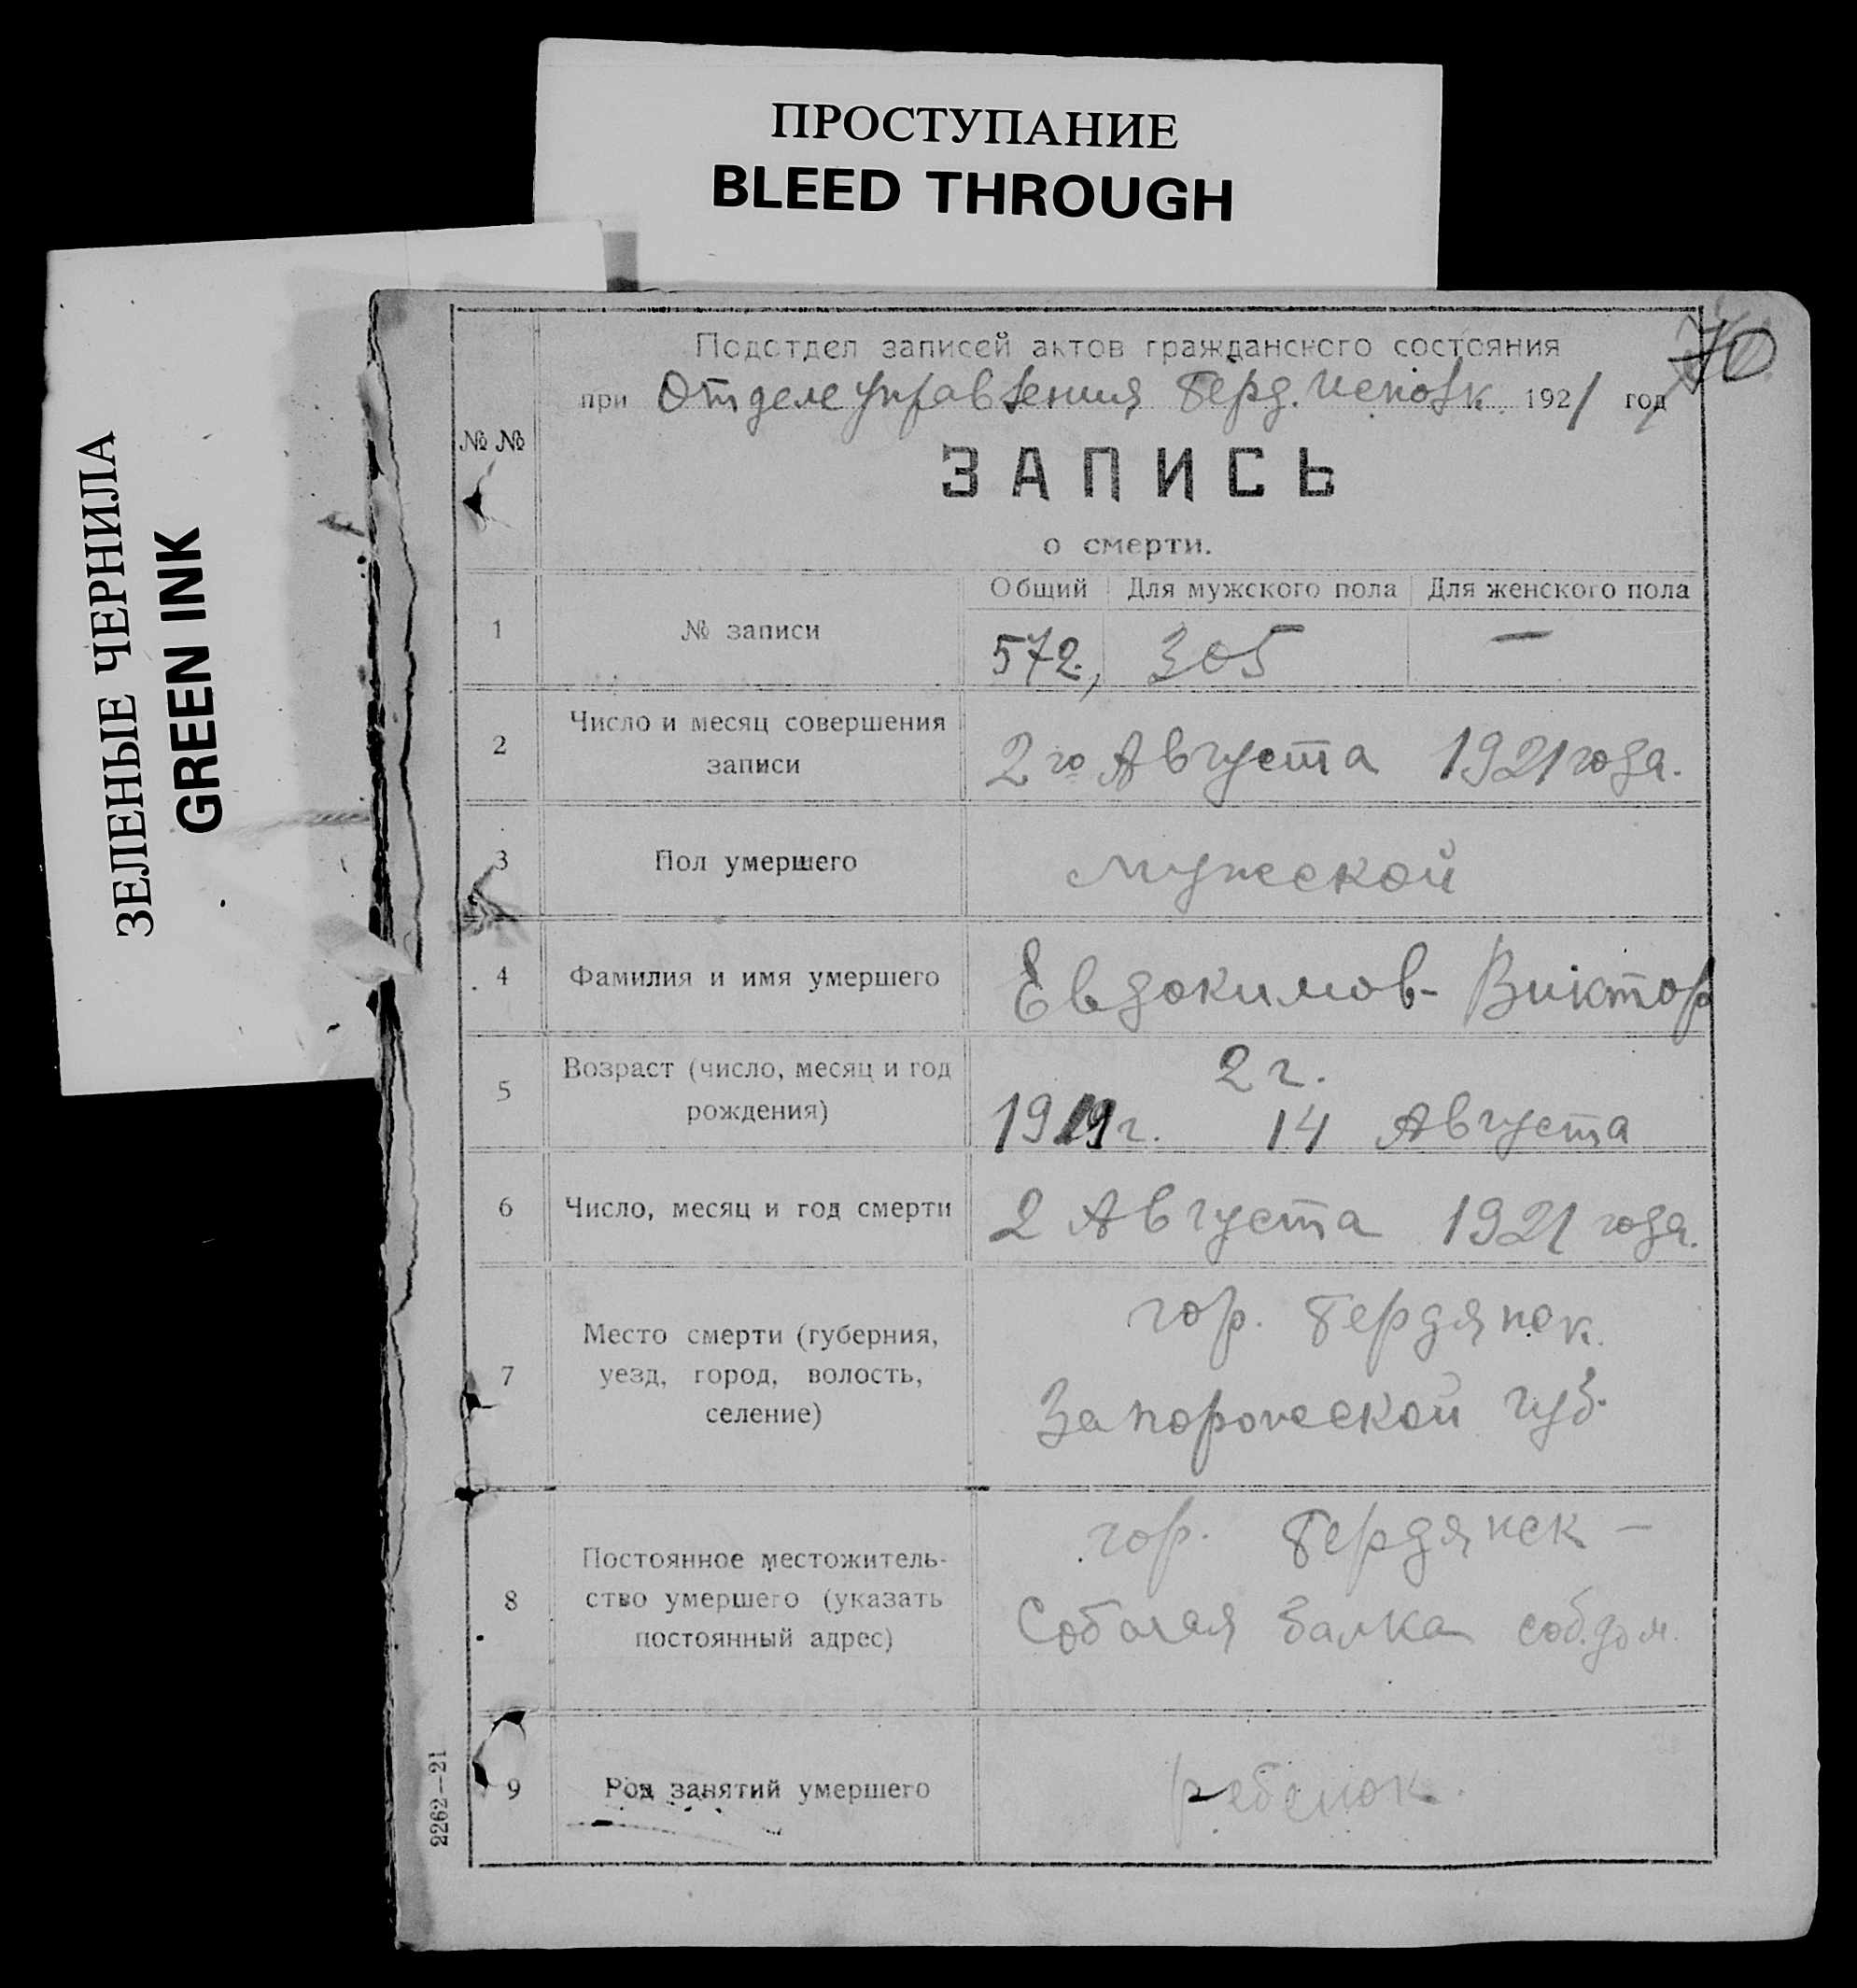 ПРОСТУПАНИЕ
BLEED THROUGH
ЗЕЛЕНЫЕ ЧЕРНИЛА
GREEN INK
70
Подотдел записей актов гражданского состояния
при Отделе управления Берд. Исполк. 1921 год
№ №
ЗАПИСЬ
о смерти.
Общий Для мужского пола Для женского пола
1 № записи 572, 305 —
2 Число и месяц совершения
записи
2го Августа 1921 года.
3 Пол умершего мужской
4 Фамилия и имя умершего Евдокимов - Виктор
5 Возраст (число, месяц и год
рождения)
2 г.
1919 г. 14 Августа
6 Число, месяц и год смерти 2 Августа 1921 года.
7 Место смерти (губерния,
уезд, город, волость,
селение)
гор. Бердянск.
Запорожской губ.
8 Постоянное местожитель-
ство умершего (указать
постоянный адрес)
гор. Бердянск —
Собачая Балка соб. дом.
9 Род занятий умершего ребенок.
2262—21